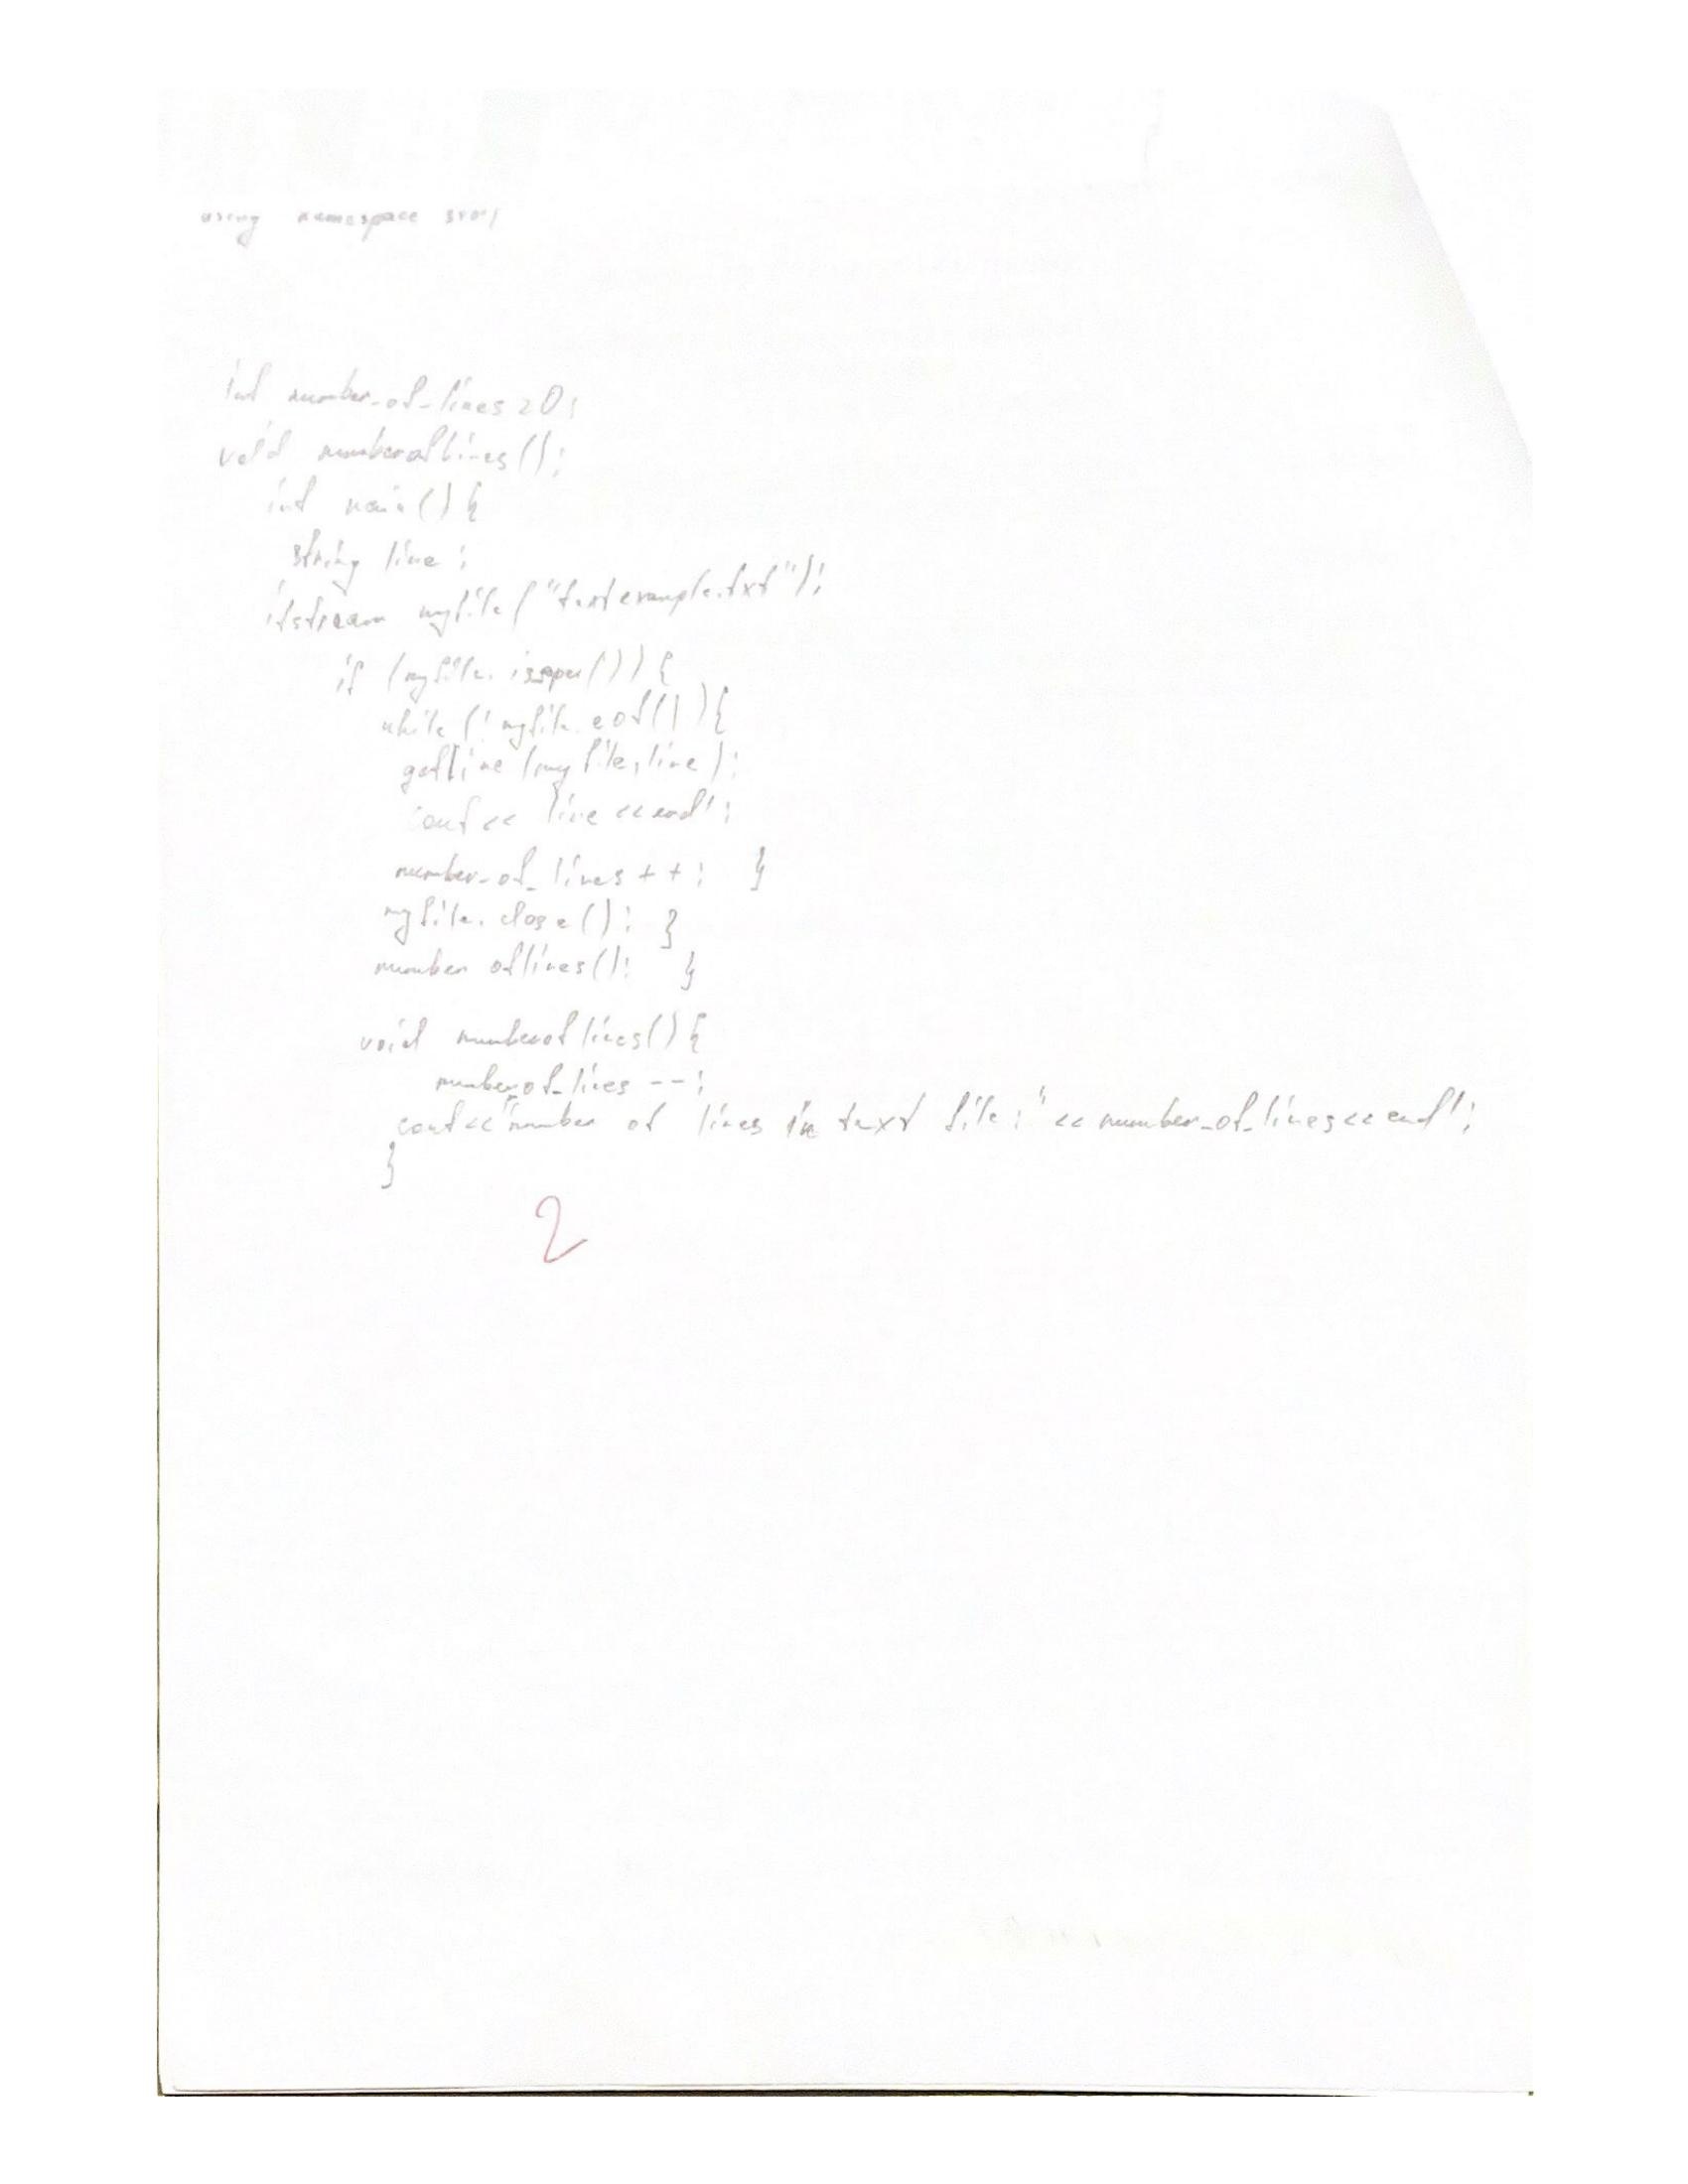 using namespace std;
int number_of_lines = 0;
void numberoflines();
int main() {
string line;
ifstream myfile ("textexample.txt");
if (myfile.isopen()) {
while (! myfile.eof()) {
getline (myfile, line);
cout << line << endl;
number_of_lines ++; }
myfile.close(); }
number oflines(); }
void numberoflines() {
number_of_lines --;
cout << "number of lines in text file: " << number_of_lines << endl;
}
2